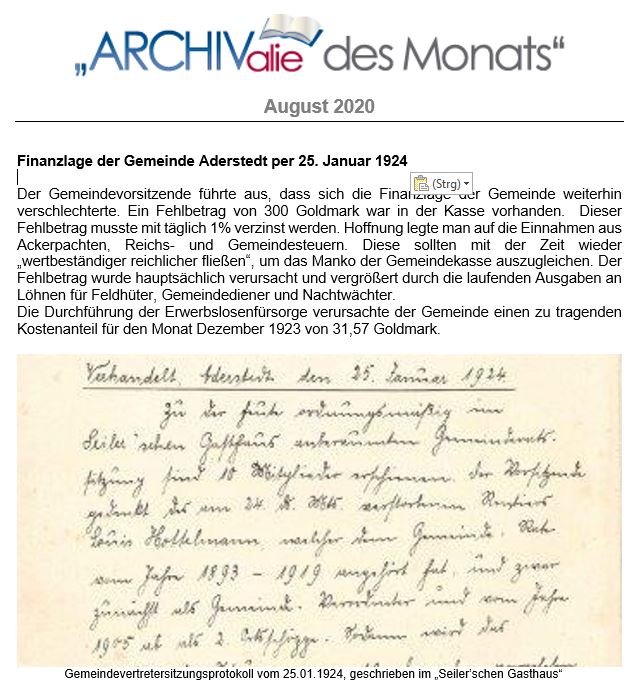 „ARCHIValie des Monats“
August 2020
Finanzlage der Gemeinde Aderstedt per 25. Januar 1924
(Strg)
Der Gemeindevorsitzende führte aus, dass sich die Finanzlage der Gemeinde weiterhin
verschlechterte. Ein Fehlbetrag von 300 Goldmark war in der Kasse vorhanden. Dieser
Fehlbetrag musste mit täglich 1% verzinst werden. Hoffnung legte man auf die Einnahmen aus
Ackerpachten, Reichs- und Gemeindesteuern. Diese sollten mit der Zeit wieder
„wertbeständiger reichlicher fließen“, um das Manko der Gemeindekasse auszugleichen. Der
Fehlbetrag wurde hauptsächlich verursacht und vergrößert durch die laufenden Ausgaben an
Löhnen für Feldhüter, Gemeindediener und Nachtwächter.
Die Durchführung der Erwerbslosenfürsorge verursachte der Gemeinde einen zu tragenden
Kostenanteil für den Monat Dezember 1923 von 31,57 Goldmark.
Verhandelt, Aderstedt den 25. Januar 1924
Zu der heute ordnungsmäßig im
Seiler'schen Gasthaus anberaumten Gemeinderats-
sitzung sind 10 Mitglieder erschienen. Der Vorsitzende
gedenkt des am 24. d. Mts. verstorbenen Rentiers
Louis Hottelmann, welcher dem Gemeinde-Rate
vom Jahre 1893 – 1919 angehört hat, und zwar
zunächst als Gemeinde-Verordneter und vom Jahre
1905 ab als 2. Ortsschöppe. Sodann wird das
Gemeindevertretersitzungsprotokoll vom 25.01.1924, geschrieben im „Seiler’schen Gasthaus“